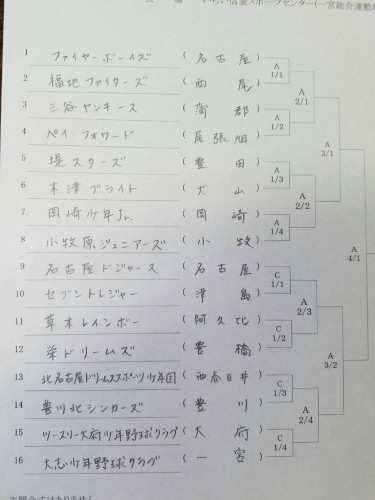 会場 いちい信金スポーツセンター(一宮総合運動場
1 ファイヤーボーイズ (名古屋)
2 福地ファイターズ (西尾)
3 三谷ヤンキース (蒲郡)
4 ペイ・フォワード (尾張旭)
5 堤スターズ (豊田)
6 木津ブライト (犬山)
7 岡崎少年Jr. (岡崎)
8 小牧原ジュニアーズ (小牧)
9 名古屋ドジャース (名古屋)
10 セブントレジャー (津島)
11 草木レインボー (阿久比)
12 栄ドリームズ (豊橋)
13 北名古屋ドリームススポーツ少年団 (西春日井)
14 豊川北シンカーズ (豊川)
15 ツースリー大府少年野球クラブ (大府)
16 大志少年野球クラブ (一宮)
A 1/1
A 1/2
A 1/3
A 1/4
C 1/1
C 1/2
C 1/3
C 1/4
A 2/1
A 2/2
A 2/3
A 2/4
A 3/1
A 3/2
A 4/1
※開会式はありません